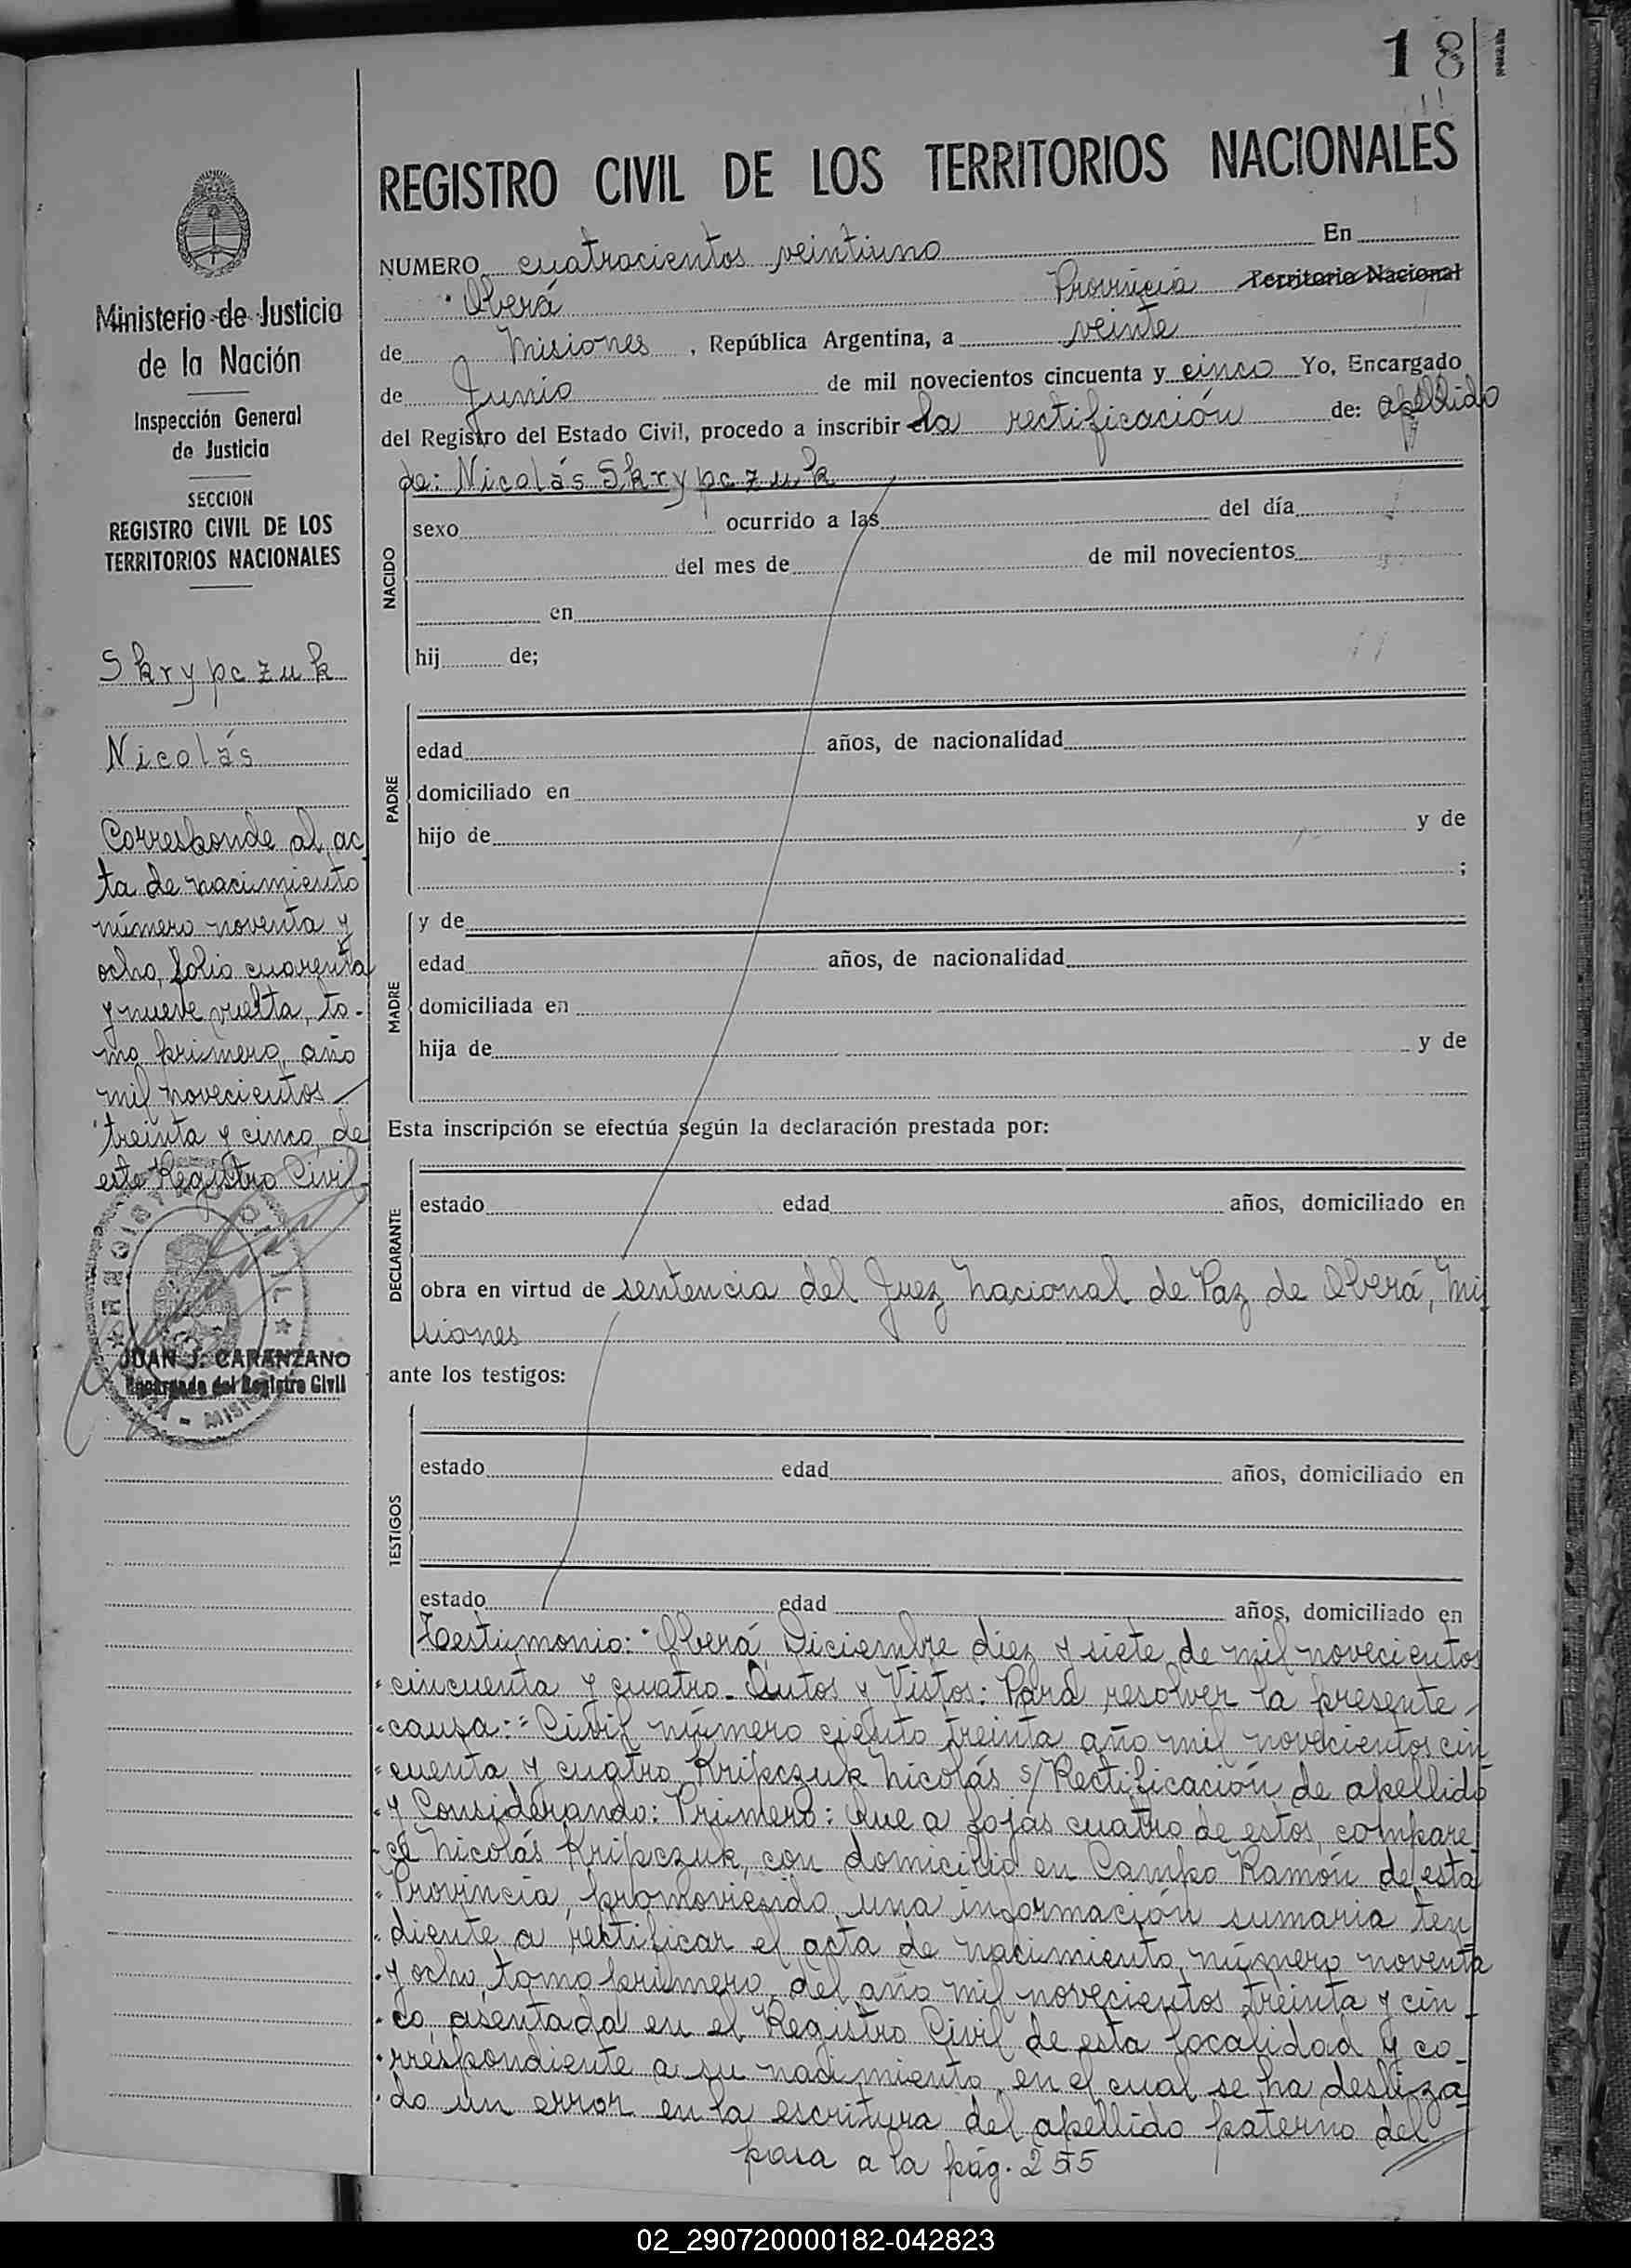 18
REGISTRO CIVIL DE LOS TERRITORIOS NACIONALES
NUMERO cuatrocientos veintiuno En
Oberá Provincia Territorio Nacional
de Misiones , República Argentina, a veinte
de Junio de mil novecientos cincuenta y cinco Yo, Encargado
del Registro del Estado Civil, procedo a inscribir la rectificación de: apellido
de: Nicolás Skrypczuk
NACIDO
sexo ocurrido a las del día
del mes de de mil novecientos
en
hij de;
PADRE
edad años, de nacionalidad
domiciliado en
hijo de y de
;
MADRE
y de
edad años, de nacionalidad
domiciliada en
hija de y de
Esta inscripción se efectúa según la declaración prestada por:
DECLARANTE
estado edad años, domiciliado en
obra en virtud de sentencia del Juez Nacional de Paz de Oberá, Mi
siones
ante los testigos:
TESTIGOS
estado edad años, domiciliado en
estado edad años, domiciliado en
Testimonio: "Oberá, Diciembre diez y siete de mil novecientos
"cincuenta y cuatro. Autos y Vistos: Para resolver la presente
"causa:= Civil número ciento treinta año mil novecientos cin
"cuenta y cuatro Kripczuk Nicolás s/ Rectificación de apellido
"y Considerando: Primero: Que a fojas cuatro de estos, compare
"ce Nicolás Kripczuk, con domicilio en Campo Ramón de esta
"Provincia, promoviendo una información sumaria ten
"diente a rectificar el acta de nacimiento número noventa
"y ocho, tomo primero, del año mil novecientos treinta y cin
"co, asentada en el Registro Civil de esta localidad y co
"rrespondiente a su nacimiento, en el cual se ha desliza
"do un error en la escritura del apellido paterno del
pasa a la pág. 255
Ministerio de Justicia
de la Nación
Inspección General
de Justicia
SECCION
REGISTRO CIVIL DE LOS
TERRITORIOS NACIONALES
Skrypczuk
Nicolás
Corresponde al ac
ta de nacimiento
número noventa y
ocho, folio cuarenta
y nueve vuelta, to-
mo primero, año
mil novecientos
treinta y cinco, de
este Registro Civil.
REGISTRO CIVIL
JUAN J. CARANZANO
Encargado del Registro Civil
02_290720000182-042823